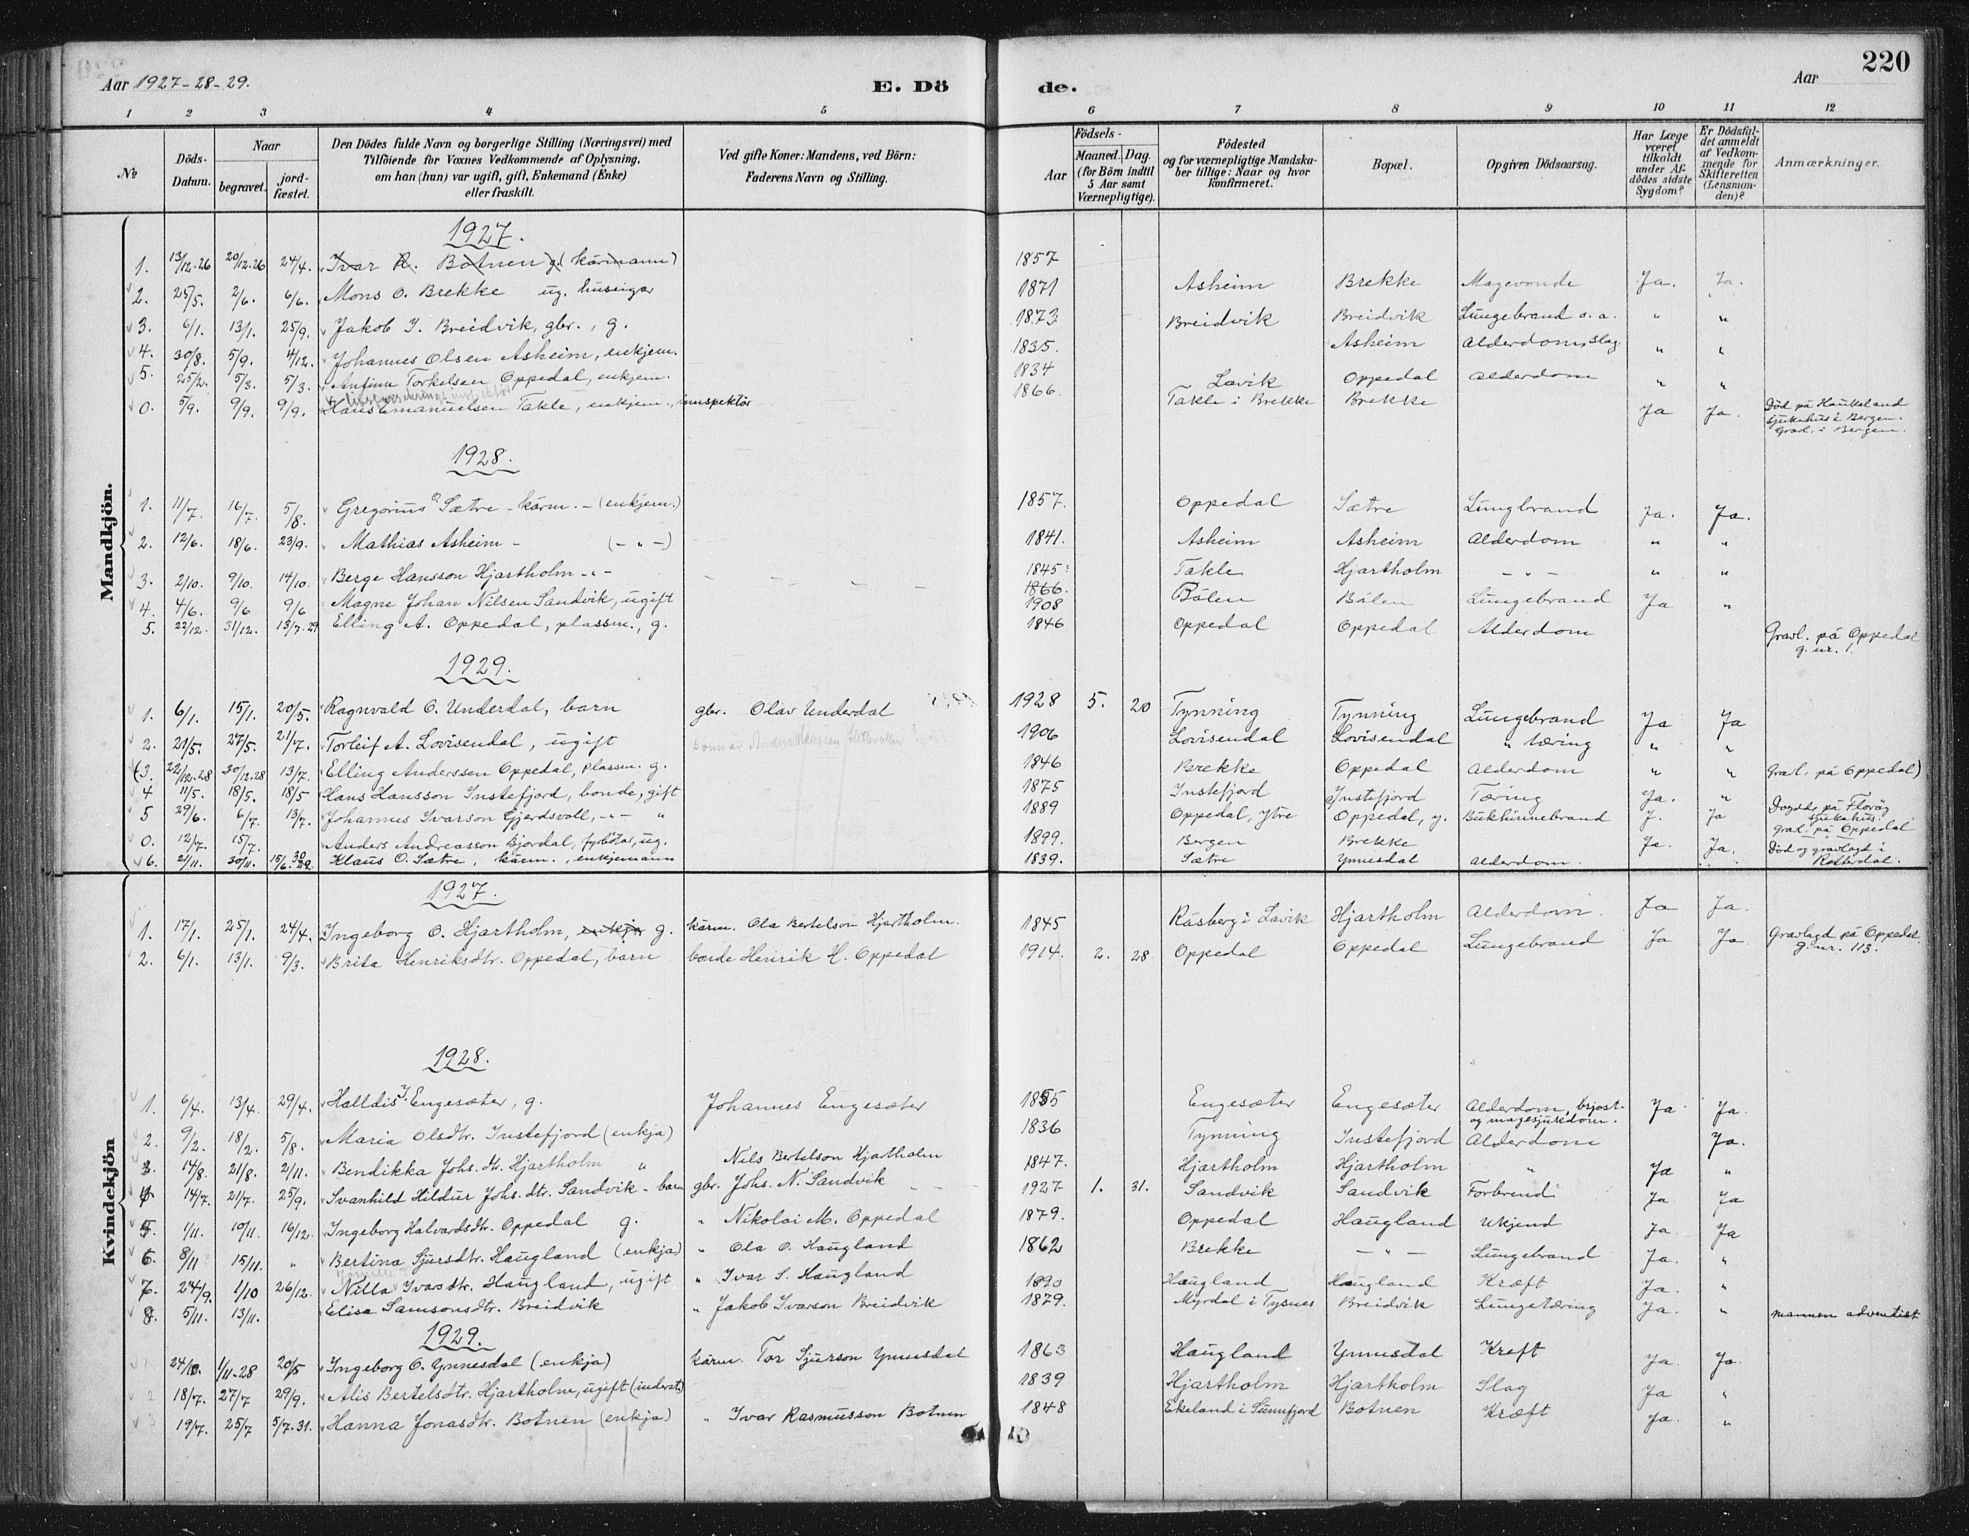 220
Aar 1927-28-29. E. Dö de. Aar
1 2 3 4 5 6 7 8 9 10 11 12
№
Döds-Datum.
Naar
begravet.
jord-fæstet.
Den Dödes fulde Navn og borgerlige Stilling (Næringsvei) med
Tilföiende for Voxnes Vedkommende af Oplysning,
om han (hun) var ugift, gift, Enkemand (Enke)
eller fraskilt.
Ved gifte Koner: Mandens, ved Börn:
Faderens Navn og Stilling.
Födsels-
Aar
Maaned. Dag.
(for Börn indtil
5 Aar samt
Værnepligtige).
Födested
og for værnepligtige Mandska-
ber tillige: Naar og hvor
konfirmeret.
Bopæl.
Opgiven Dödsaarsag.
Har Læge
været
tilkaldt
under Af-
dödes sidste
Sygdom?
Er Dödsfal-
det anmeldt
af Vedkom-
mende for
Skifteretten
(Lensman-
den)?
Anmærkninger.
Mandkjön.
1927.
1. 13/12.26 20/12.26 24/4. Ivar R. Botnen g. (kårmann) 1857
2. 25/5. 2/6. 6/6. Mons O. Brekke ug. huseigar 1871 Asheim Brekke Magevonde Ja. Ja.
3. 6/1. 13/1. 25/9. Jakob I. Breidvik, gbr., g. 1873 Breidvik Breidvik Lungebrand o.a. " "
4. 30/8. 5/9. 4/12. Johannes Olsen Asheim, enkjem. 1835. Asheim Alderdom, slag " "
5. 25/2. 5/3. 5/3. Torkelsen Oppedal, enkjem. 1834 Lavik Oppedal Alderdom " "
0. 5/9. 9/9. 9/9. Hans Emanuelsen Takle, enkjem., innspektör 1866. Takle i Brekke Brekke Ja Ja. Död på Haukeland
sjukehus i Bergen.
Gravl. i Bergen.
1928.
1. 11/7. 16/7. 5/8. Gregorius O. Sætre - kårm. - (enkjem.) 1857. Oppedal Sætre Lungbrand Ja. Ja.
2. 12/6. 18/6. 23/9. Mathias Asheim - (- " -) 1841. Asheim Asheim Alderdom " "
3. 2/10. 9/10. 14/10. Berge Hansson Hjartholm - " - 1845. Takle Hjartholm - " - " "
4. 4/6. 9/6 9/6 Magne Johan Nilsen Sandvik, ugift 1866. 1908 Bålen Bålen Lungebrand Ja "
5. 22/12. 31/12. 13/7.29 Elling A. Oppedal, plassm., g. 1846 Oppedal Oppedal Alderdom Gravl. på Oppedal
g. nr. 1.
1929.
1. 6/1. 15/1. 20/5. Ragnvald O. Underdal, barn gbr. Olav Underdal 1928 5. 20 Tynning Tynning Lungebrand Ja Ja
2. 21/5. 27/5. 21/7. Torleif A. Lovisendal, ugift 1906 Lovisendal Lovisendal " tæring " "
(3. 22/12.28 30/12.28 13/7. Elling Anderssen Oppedal, plassm. g. 1846 Brekke Oppedal Alderdom " " Gravl. på Oppedal)
4 11/5. 18/5. 18/5 Hans Hansson Instefjord, bonde, gift 1875 Instefjord Instefjord Tæring Ja. "
5 29/6. 6/7. 13/7. Johannes Ivarson Gjerdsvoll, - " - " 1889 Oppedal, Ytre Oppedal, y. Bukhinnebrand J. Ja Döydde på Florög
sjukahus.
gravl. på Oppedal
0. 12/7. 15/7. Anders Andreasson Bjordal, fyrböter, ug. 1899. Bergen Brekke Ja. Ja. Död og gravlagd i
Rotterdal.
6. 2/11. 30/11. Klaus O. Sætre, kårm., enkjemann 1839. Sætre Ynnesdal Alderdom.
Kvindekjön
1927.
1. 17/1. 25/1. 24/4. Ingeborg O. Hjartholm, enkja g. kårm. Ola Bertelson Hjartholm. 1845 Råsberg i Lavik Hjartholm Alderdom Ja Ja.
2. 6/1. 13/1. 9/3. Brita Henriksdtr. Oppedal, barn bonde Henrik H. Oppedal 1914. 2. 28 Oppedal Oppedal Lungebrand Ja Ja. Gravlagd på Oppedal.
g. nr. 113.
1928.
1. 6/4. 13/4. 29/4. Halldis J. Engesæter, g. Johannes Engesæter 1855 Engesæter Engesæter Alderdom, brjost-
og magesjukedom. Ja. Ja.
2. 9/2. 18/2. 5/8. Maria Olsdtr. Instefjord (enkja) 1836 Tynning Instefjord Alderdom Ja.
3. 14/8. 21/8. 2/11. Bendikka Johs. dt. Hjartholm " Nils Bertelson Hjartholm 1847. Hjartholm Hjartholm " Ja "
4. 14/7. 21/7. 25/9. Svanhild Hildur Johs. dtr. Sandvik - barn gbr. Johs. N. Sandvik 1927 1. 31. Sandvik Sandvik Forbrend Ja Ja
5. 1/11. 10/11. 16/12. Ingeborg Halvardsdtr. Oppedal g. " Nikolai M. Oppedal 1879. Oppedal Haugland Ukjend Ja. Ja
6. 8/11 15/11. " Bertina Sjursdtr. Haugland (enkja) " Ola O. Haugland 1862 Brekke - " - Lungebrand Ja. "
7. 24/9. 1/10 26/12. Nilla Ivarsdtr. Haugland, ugift " Ivar S. Haugland 1890 Haugland Haugland Kræft Ja. "
8. 5/11. 13/11. Elisa Samsonsdtr. Breidvik " Jakob Ivarson Breidvik 1879. Myrdal i Tysnes Breidvik Lungetæring Ja. " mannen adventist
1929.
1 24/10. 1/11-28 20/5 Ingeborg O. Ynnesdal (enkja) kårm. Tor Sjurson Ynnesdal 1863 Haugland Ynnesdal Kreft Ja. Ja.
2 18/7. 27/7 29/9. Alis Bertelsdtr. Hjartholm, ugift (inderst) 1839 Hjartholm Hjartholm Slag Ja "
3 19/7. 25/7 5/7.31. Hanna Jonasdtr. Botnen (enkja) " Ivar Rasmusson Botnen 1848 Ekeland i Sunnfjord Botnen Kræft Ja. "